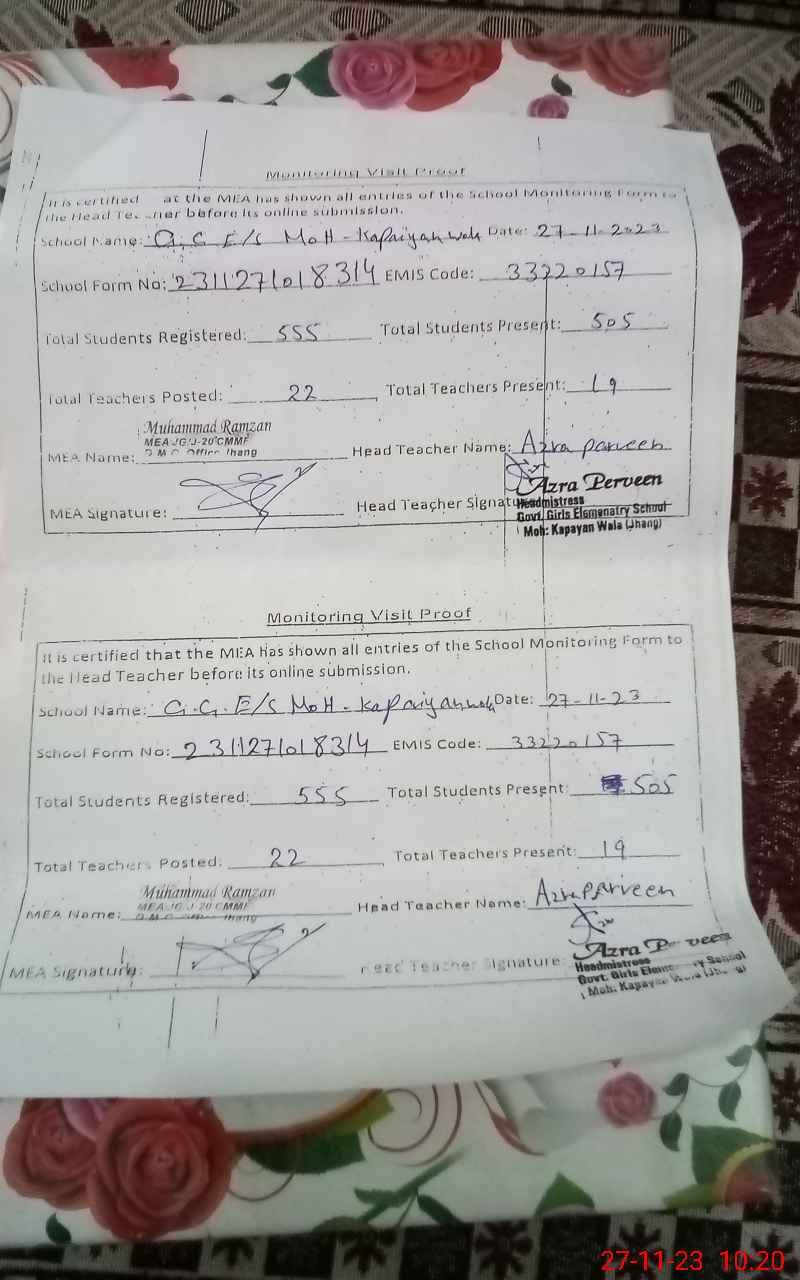 Monitoring Visit Proof
It is certified at the MEA has shown all entries of the School Monitoring Form to
the Head before its online submission.
School Name: G.G E/S MoH-Kapaiyanwala Date: 27-11-2023
School Form No: 2311271018314 EMIS Code: 33220157
Total Students Registered: 555 Total Students Present: 505
Total Teachers Posted: 22 Total Teachers Present: 19
Muhammad Ramzan
MEA Office Jhang
MEA Name: Head Teacher Name: Azra Parveen
Azra Perveen
MEA Signature: Head Teacher Signatu
Headmistress
Govt. Girls Elemenatry School
Moh: Kapayan Wala (Jhang)
Monitoring Visit Proof
It is certified that the MEA has shown all entries of the School Monitoring Form to
the Head Teacher before its online submission.
School Name: G.G.E/S MoH-Kapaiyanwala Date: 27-11-23
School Form No: 2311271018314 EMIS Code: 33220157
Total Students Registered: 555 Total Students Present: 505
Total Teachers Posted: 22 Total Teachers Present: 19
Muhammad Ramzan
MEA Name: Head Teacher Name: Azra Parveen
MEA Signature: ead Teacher Signature:
Azra veen
Headmistress
Govt. Girls School
Moh:
27-11-23 10:20